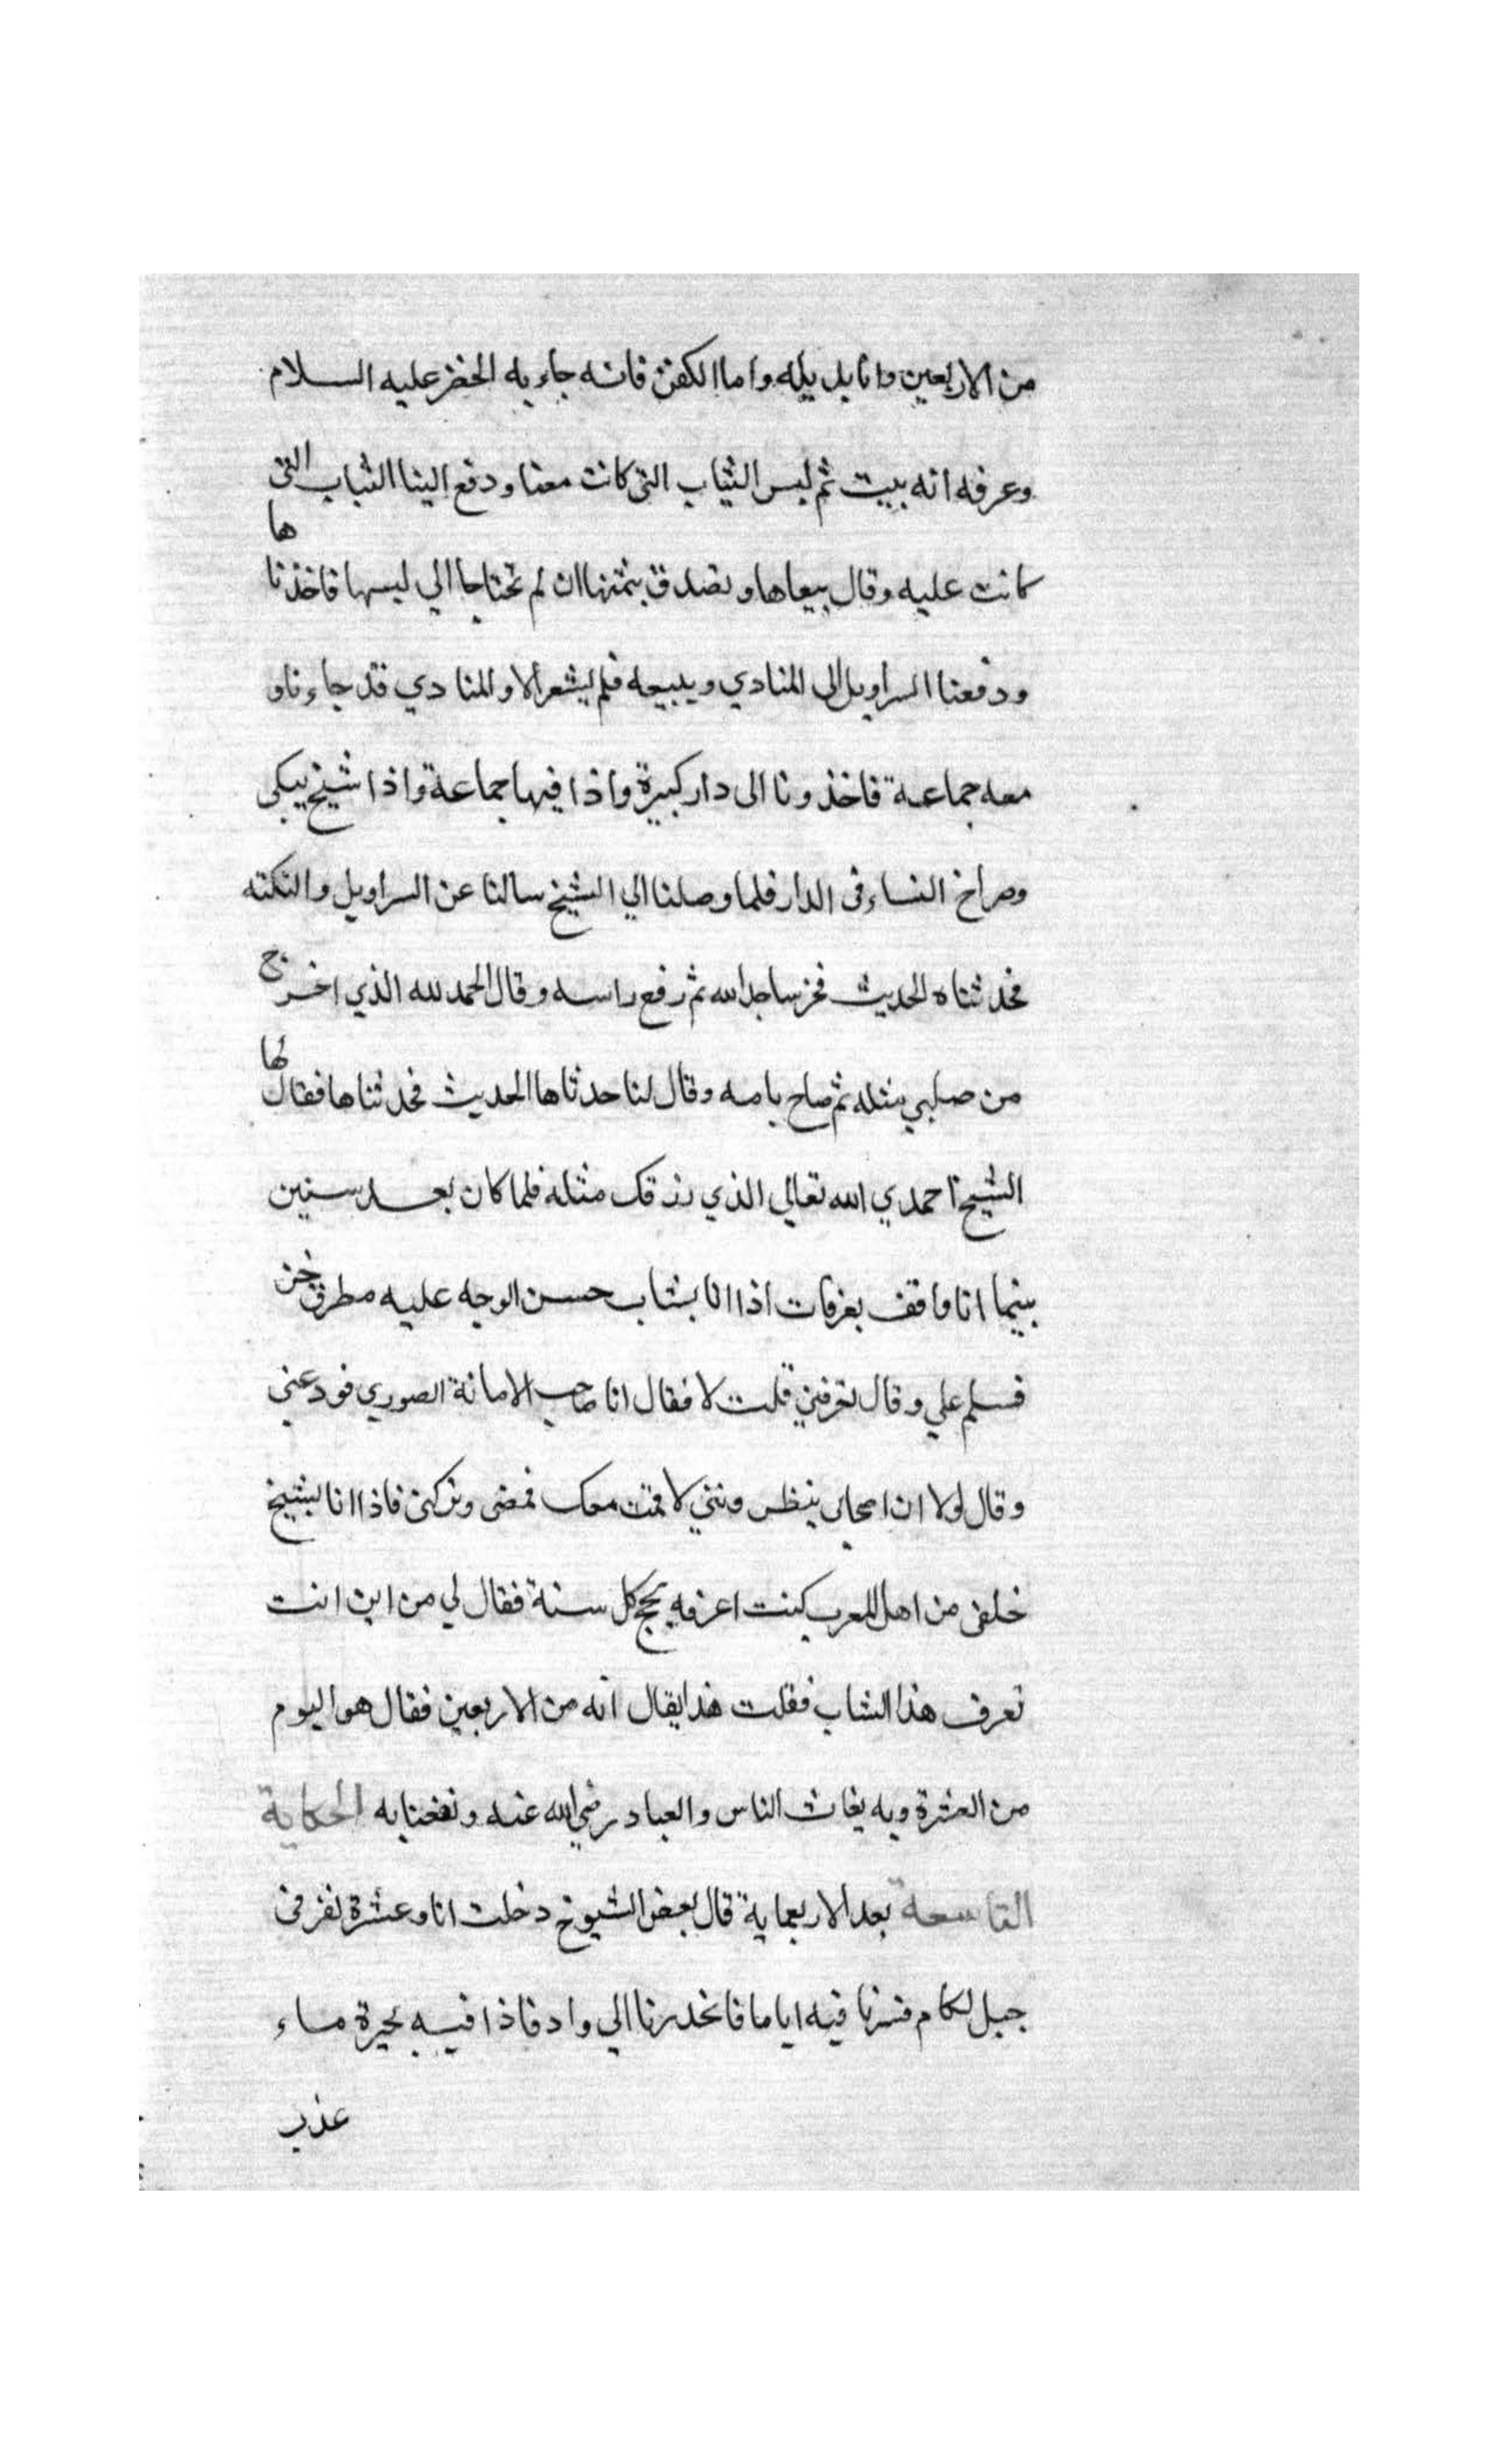 من الاربعين وانا بديله واما الكفن فانه جاء به الخضر عليه السلام
وعرفه انه يبيت ثم لبس الثياب التي كانت معنا ودفع الينا الثياب التي
كانت عليه وقال بيعاها وتصدق بثمنها ان لم تحتاجا الي لبسها فاخذناها
ودفعنا السراويل الى المنادي ويبيعه فلم يشعر الا والمنادي قد جاءنا و
معه جماعة فاخذونا الى دار كبيرة واذا فيها جماعة واذا شيخ يبكى
وصراخ النساء فى الدار فلما وصلنا الي الشيخ سالنا عن السراويل والتكته
فحدثناه الحديث فخر ساجدا لله ثم رفع راسه وقال الحمد لله الذي اخرج
من صلبي مثله ثم صاح بامه وقال لنا حدثاها الحديث فحدثناها فقال لها
الشيخ احمدي الله تعالي الذي رزقك مثله فلما كان بعد سنين
بينما انا واقف بعرفات اذا انا بشاب حسن الوجه عليه مطرف خز
فسلم علي وقال تعرفني قلت لا فقال انا صاحب الامانة الصوري فودعني
وقال لولا ان اصحابى ينظرونني لاقمت معك فمضى وتركنى فاذا انا بشيخ
خلفى من اهل المغرب كنت اعرفه يحج كل سنة فقال لي من اين انت
تعرف هذا الشاب فقلت هذا يقال انه من الاربعين فقال هو اليوم
من العشرة وبه يغاث الناس والعباد رضي الله عنه ونفعنا به الحكاية
التاسعة بعد الاربعماية قال بعض الشيوخ دخلت انا وعشرة نفر فى
جبل لكام فسرنا فيه اياما فانحدرنا الي واد فاذا فيه بحيرة ماء
عذب